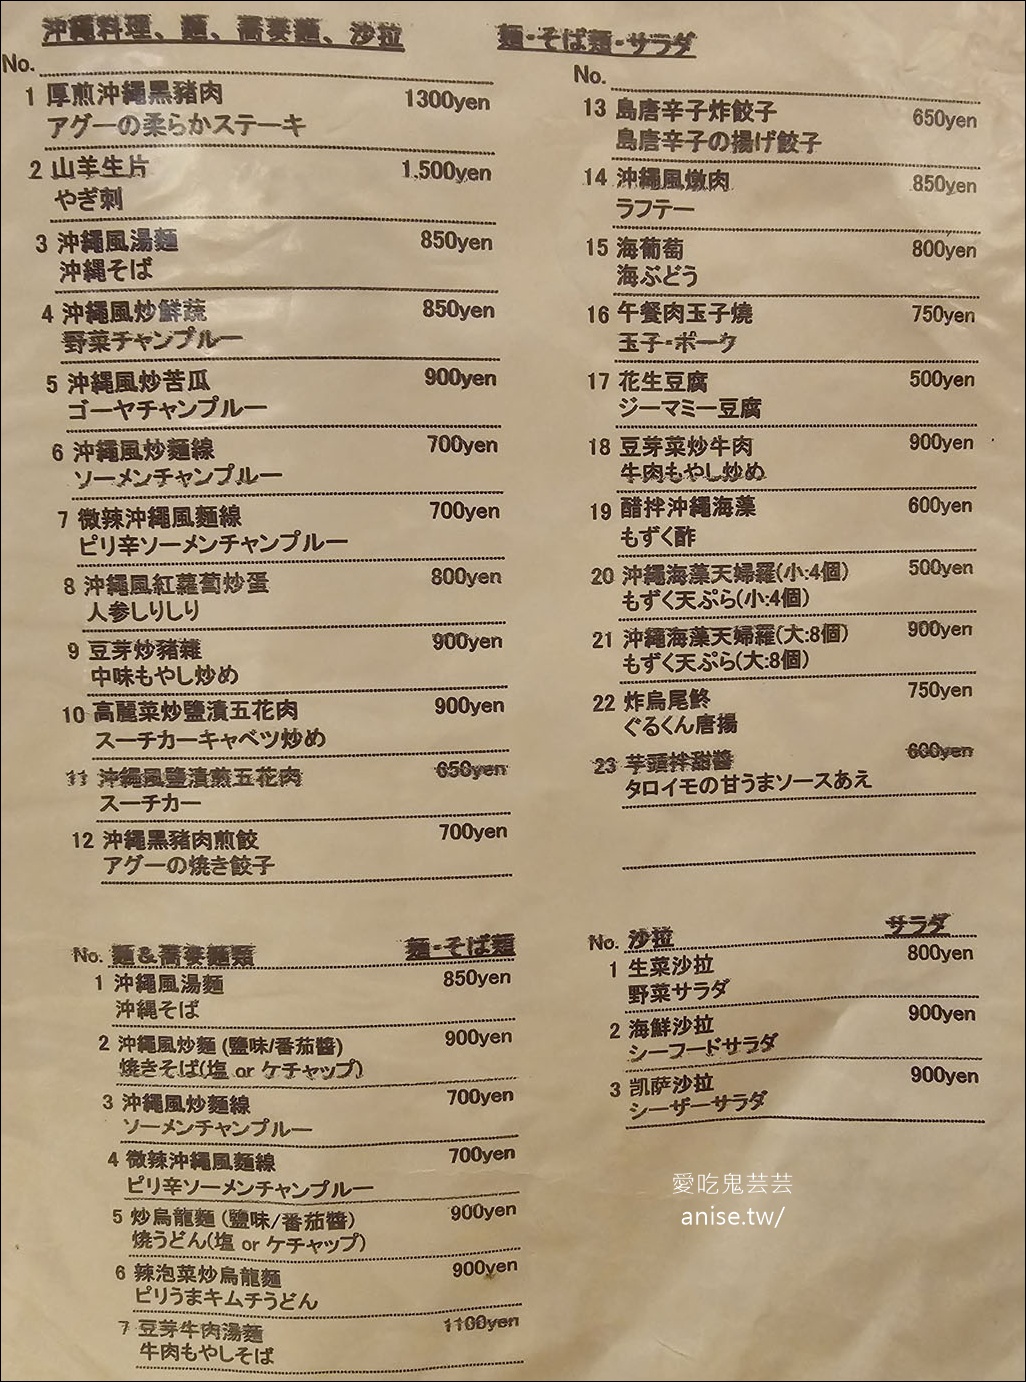 沖繩料理、麵、蕎麥麵、沙拉
No.
1 厚煎沖繩黑豬肉 1300yen
アグーの柔らかステーキ
2 山羊生片 1,500yen
やぎ刺
3 沖繩風湯麵 850yen
沖縄そば
4 沖繩風炒鮮蔬 850yen
野菜チャンプルー
5 沖繩風炒苦瓜 900yen
ゴーヤチャンプルー
6 沖繩風炒麵線 700yen
ソーメンチャンプルー
7 微辣沖繩風麵線 700yen
ピリ辛ソーメンチャンプルー
8 沖繩風紅蘿蔔炒蛋 800yen
人参しりしり
9 豆芽炒豬雜 900yen
中味もやし炒め
10 高麗菜炒鹽漬五花肉 900yen
スーチカーキャベツ炒め
11 沖繩風鹽漬煎五花肉 650yen
スーチカー
12 沖繩黑豬肉煎餃 700yen
アグーの焼き餃子
麺・そば類・サラダ
No.
13 島唐辛子炸餃子 650yen
島唐辛子の揚げ餃子
14 沖繩風燉肉 850yen
ラフテー
15 海葡萄 800yen
海ぶどう
16 午餐肉玉子燒 750yen
玉子・ポーク
17 花生豆腐 500yen
ジーマミー豆腐
18 豆芽菜炒牛肉 900yen
牛肉もやし炒め
19 醋拌沖繩海藻 600yen
もずく酢
20 沖繩海藻天婦羅(小:4個) 500yen
もずく天ぷら(小:4個)
21 沖繩海藻天婦羅(大:8個) 900yen
もずく天ぷら(大:8個)
22 炸烏尾鮗 750yen
ぐるくん唐揚
23 芋頭拌甜醬 600yen
タロイモの甘うまソースあえ
No. 麵&蕎麥麵類 麺・そば類
1 沖繩風湯麵 850yen
沖縄そば
2 沖繩風炒麵(鹽味/番茄醬) 900yen
焼きそば(塩 or ケチャップ)
3 沖繩風炒麵線 700yen
ソーメンチャンプルー
4 微辣沖繩風麵線 700yen
ピリ辛ソーメンチャンプルー
5 炒烏龍麵(鹽味/番茄醬) 900yen
焼うどん(塩 or ケチャップ)
6 辣泡菜炒烏龍麵 900yen
ピリうまキムチうどん
7 豆芽牛肉湯麵 1100yen
牛肉もやしそば
No. 沙拉 サラダ
1 生菜沙拉 800yen
野菜サラダ
2 海鮮沙拉 900yen
シーフードサラダ
3 凱萨沙拉 900yen
シーザーサラダ
愛吃鬼芸芸
anise.tw/